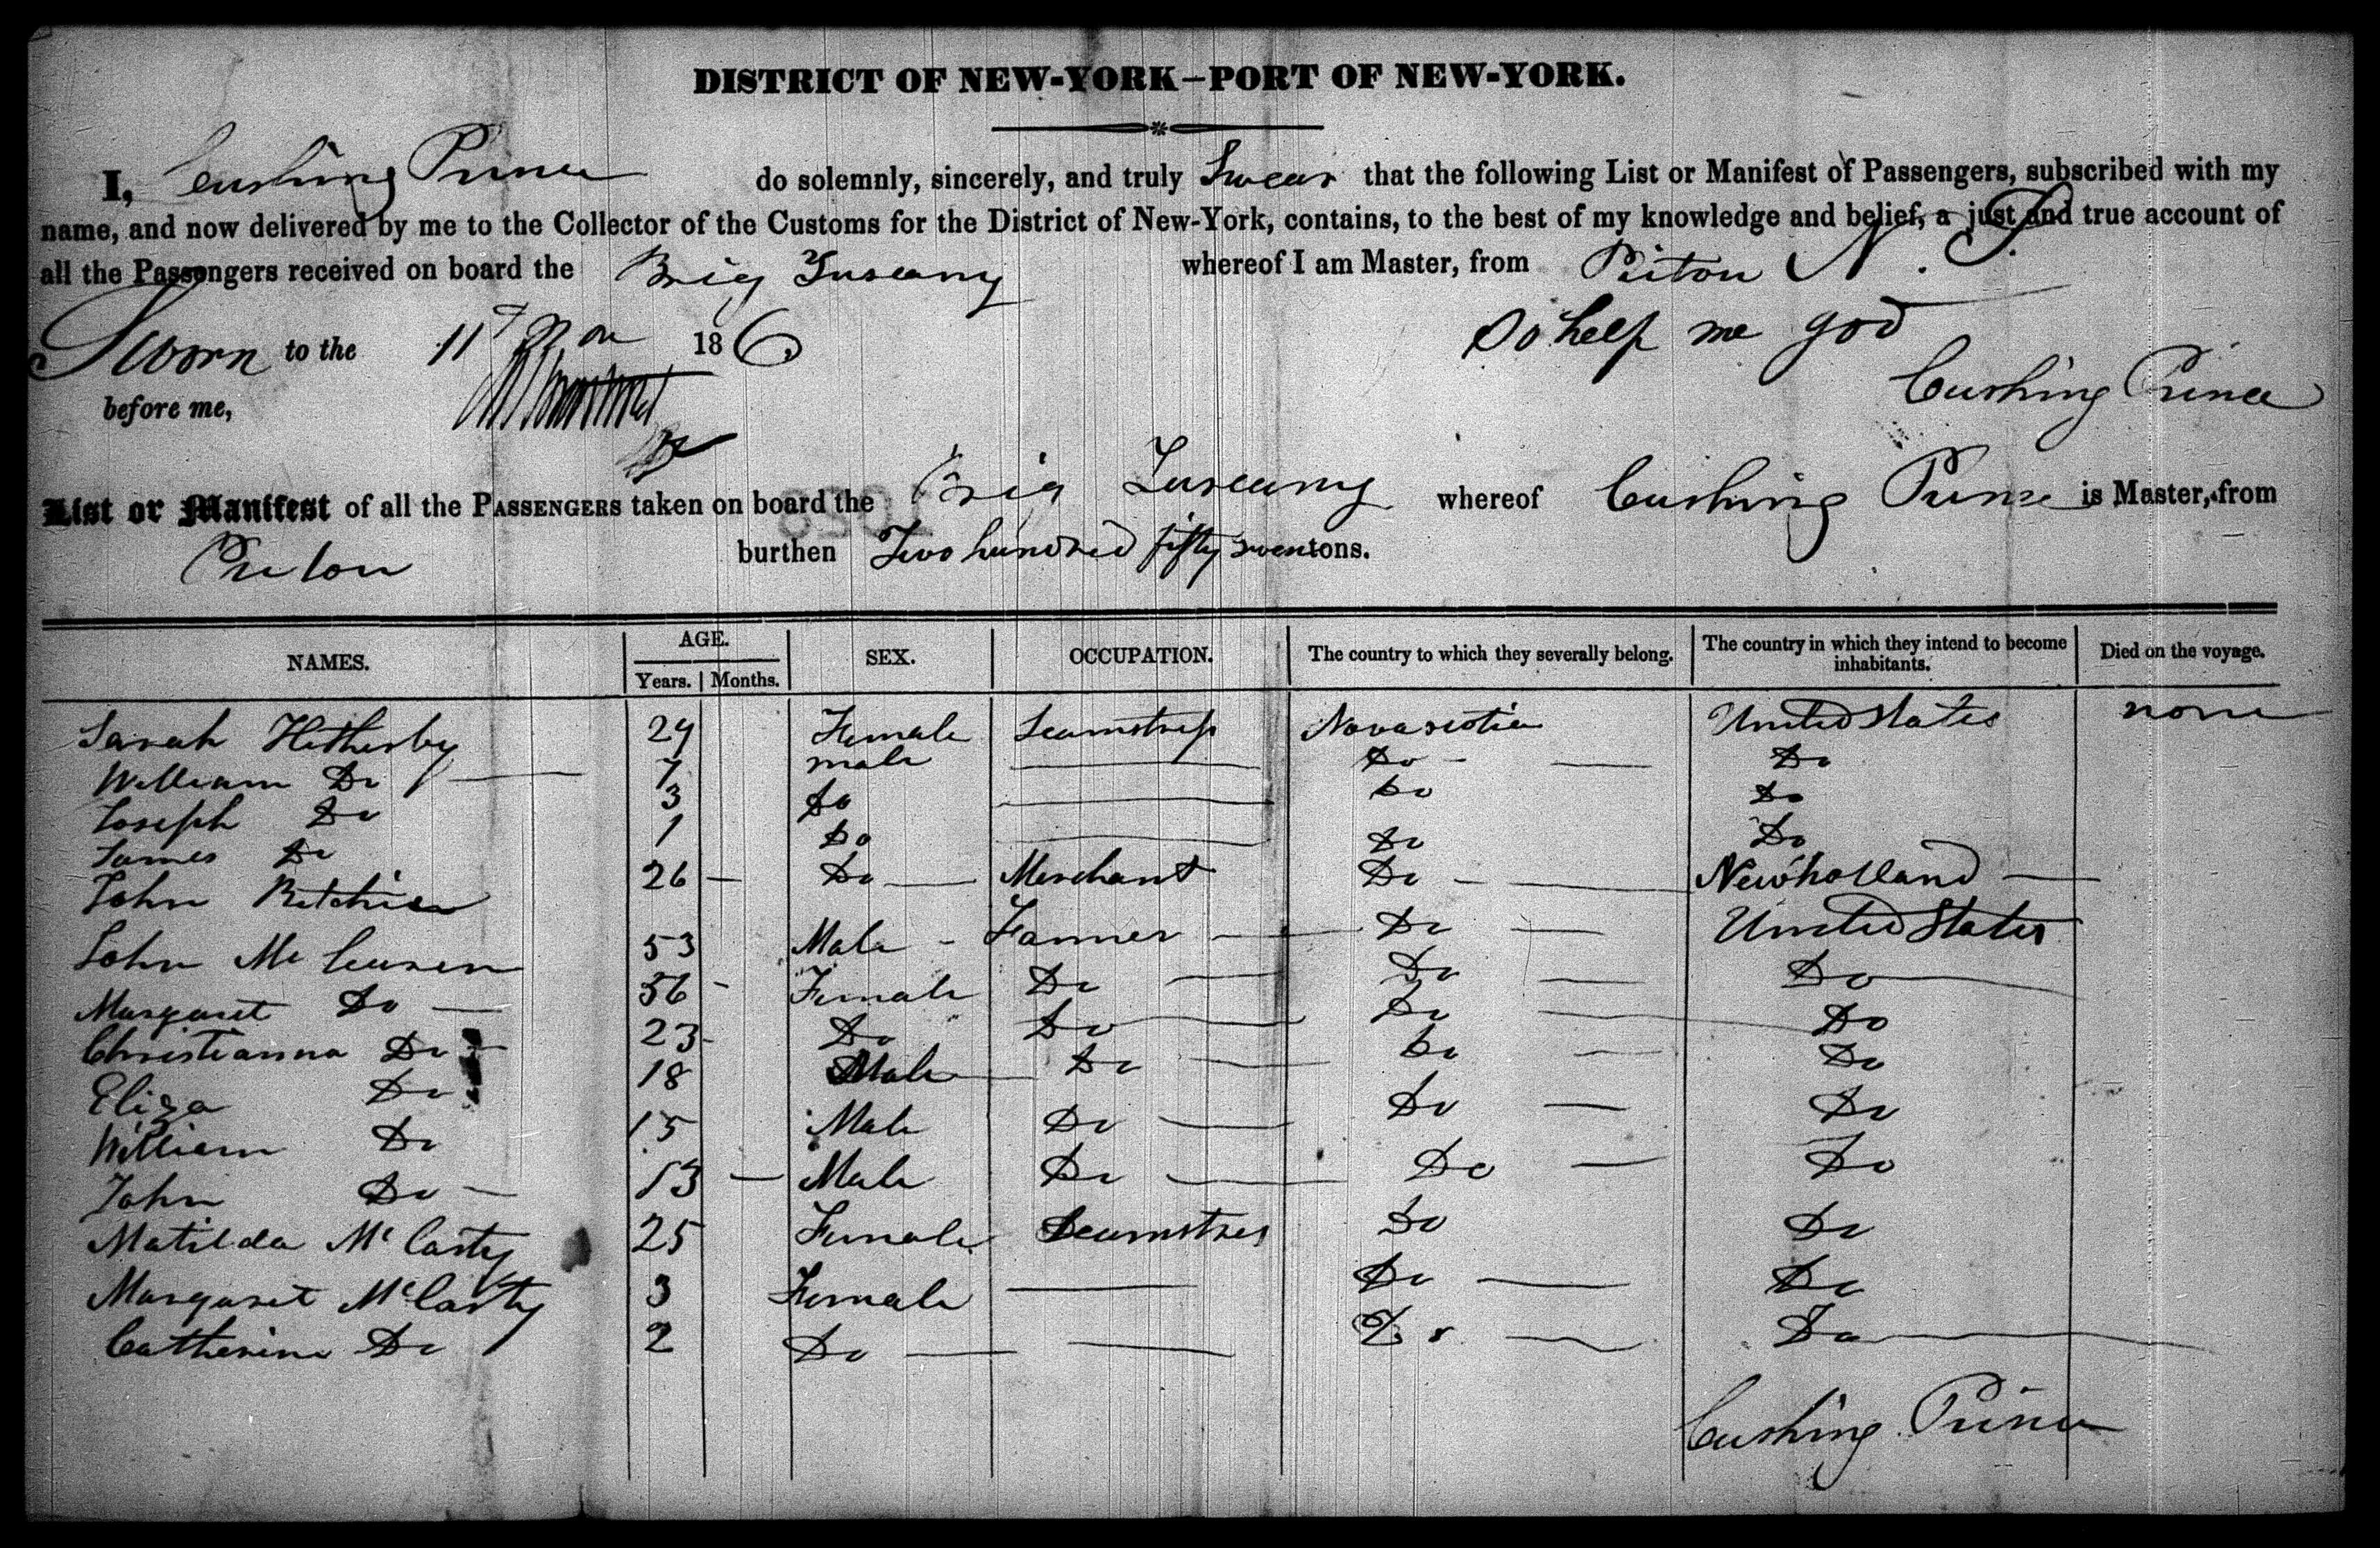 DISTRICT OF NEW-YORK—PORT OF NEW-YORK.
I, Cushing Prince do solemnly, sincerely, and truly Swear that the following List or Manifest of Passengers, subscribed with my
name, and now delivered by me to the Collector of the Customs for the District of New-York, contains, to the best of my knowledge and belief, a just and true account of
all the Passengers received on board the Brig Tuscany whereof I am Master, from Picton N. S.
Sworn to the 11 Nov 186 So help me god
before me, Cushing Prince
List or Manifest of all the PASSENGERS taken on board the Brig Tuscany whereof Cushing Prince is Master, from
Picton burthen Two hundred fifty seven tons.
NAMES. AGE. Years. Months. SEX. OCCUPATION. The country to which they severally belong. The country in which they intend to become inhabitants. Died on the voyage.
Sarah Hetherby 29 Female Seamstress Novascotia United States none
William Do 7 male Do Do
Joseph Do 3 Do Do Do
James Do 1 Do Do Do
John Ritchie 26 Do Merchant Do New holland
John Mc 53 Male Farmer Do United States
Margaret Do 56 Female Do Do Do
Christianna Do 23 Do Do Do Do
Eliza Do 18 Male Do Do Do
William Do 15 Male Do Do Do
John Do 13 Male Do Do Do
Matilda Mc Carty 25 Female Seamstres Do Do
Margaret McCarty 3 Female Do Do
Catherine Do 2 Do Do Do
Cushing Prince